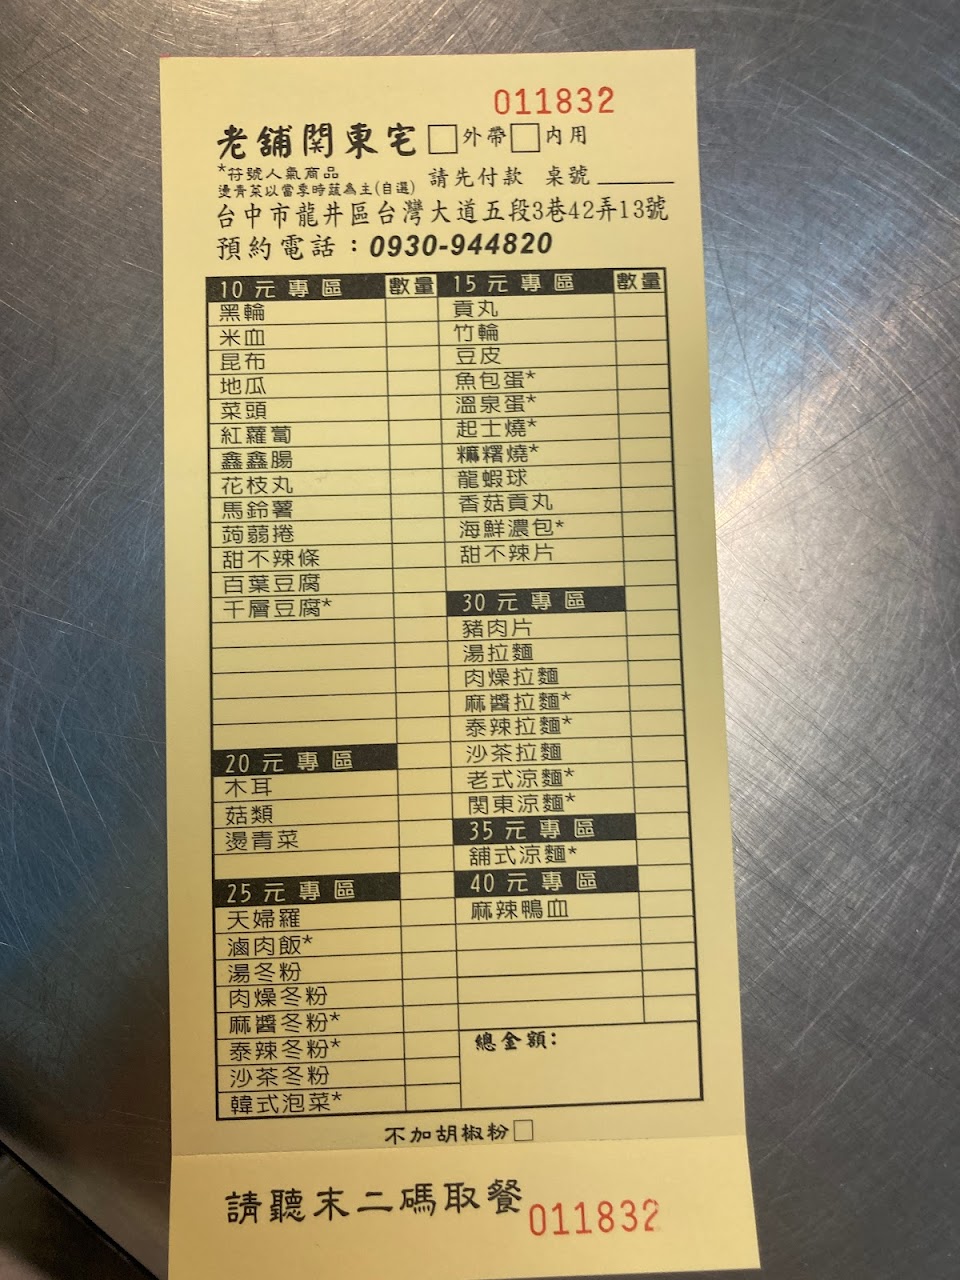 011832
老舖関東宅 □外帶□內用
*符號人氣商品
燙青菜以當季時蔬為主(自選)
請先付款 桌號
台中市龍井區台灣大道五段3巷42弄13號
預約電話：0930-944820
10元專區 數量
黑輪
米血
昆布
地瓜
菜頭
紅蘿蔔
鑫鑫腸
花枝丸
馬鈴薯
蒟蒻捲
甜不辣條
百葉豆腐
千層豆腐*
20元專區
木耳
菇類
燙青菜
25元專區
天婦羅
滷肉飯*
湯冬粉
肉燥冬粉
麻醬冬粉*
泰辣冬粉*
沙茶冬粉
韓式泡菜*
15元專區 數量
貢丸
竹輪
豆皮
魚包蛋*
溫泉蛋*
起士燒*
麻糬燒*
龍蝦球
香菇貢丸
海鮮濃包*
甜不辣片
30元專區
豬肉片
湯拉麵
肉燥拉麵
麻醬拉麵*
泰辣拉麵*
沙茶拉麵
老式涼麵*
関東涼麵*
35元專區
舖式涼麵*
40元專區
麻辣鴨血
總金額：
不加胡椒粉□
請聽末二碼取餐 011832